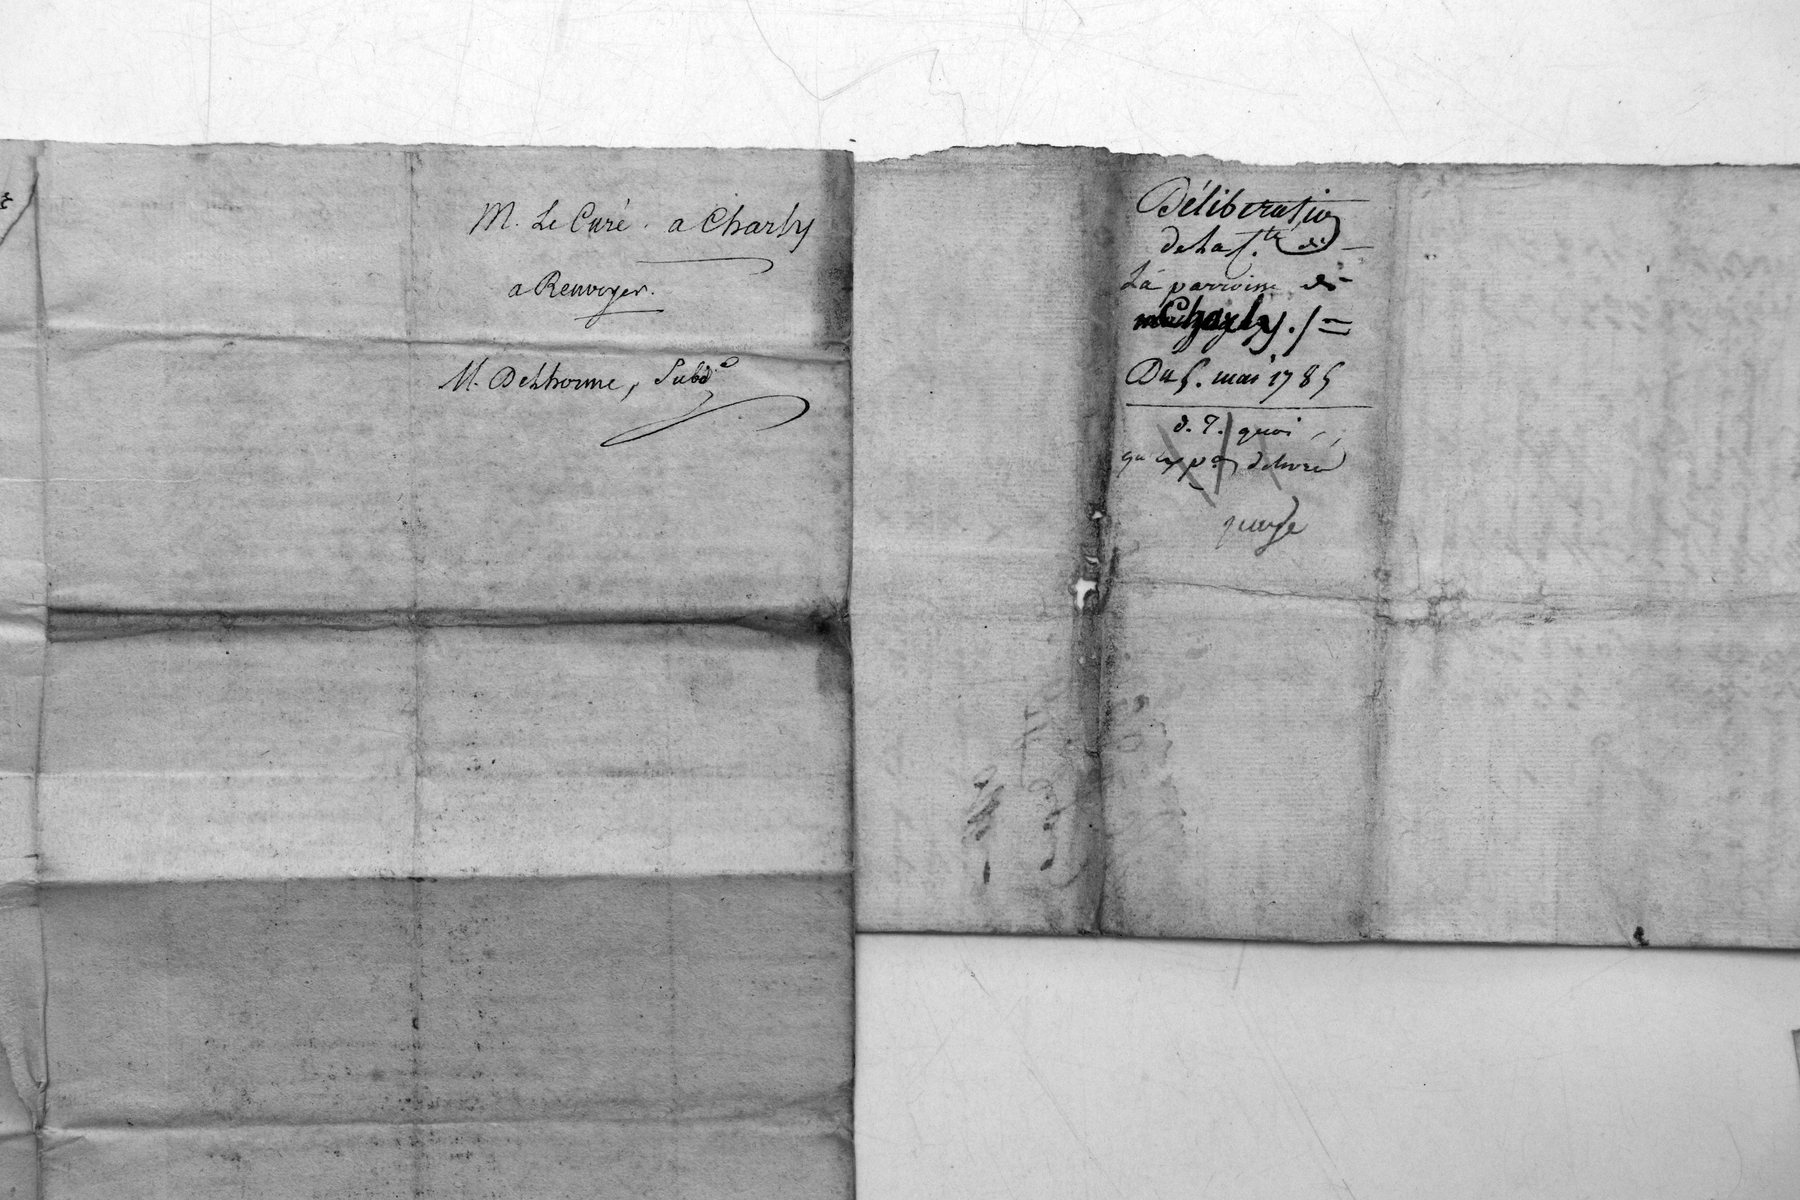 M. Le Curé. a Charly
a Renvoyer.
M. Delhorme, Subd.
Délibération
de La
La parroisse de
Charly. /=
Du 5. mai 1785
d. T. quoi
delivré